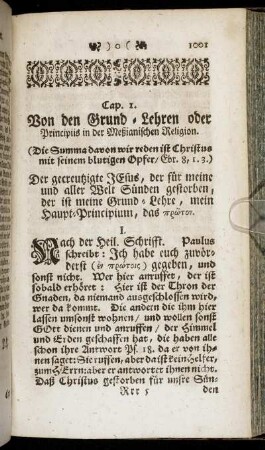 )o( 1001
Cap. 1.
Von den Grund-Lehren oder
Principiis in der Meßianischen Religion.
(Die Summa davon wir reden ist Christus
mit seinem blutigen Opfer/ Ebr. 8, 1. 3.)
Der gecreutzigte JEsus, der für meine
und aller Welt Sünden gestorben,
der ist meine Grund-Lehre, mein
Haupt-Principium, das πρῶτον.
I.
Nach der Heil. Schrifft. Paulus
schreibt: Ich habe euch zuvör-
derst (ἐν πρώτοις) gegeben, und
sonst nicht. Wer hier anruffet, der ist
sobald erhöret: Hier ist der Thron der
Gnaden, da niemand ausgeschlossen wird,
wer da kommt. Die andern die ihm hier
lassen umsonst wohnen/ und wollen sonst
GOtt dienen und anruffen/ der Himmel
und Erden geschaffen hat, die haben alle
schon ihre Antwort Ps. 18. da er von ih-
nen saget: Sie ruffen, aber da ist kein Helfer,
zum HErrn: aber er antwortet ihnen nicht.
Daß Christus gestorben für unsre Sün-
Rrr 5 den